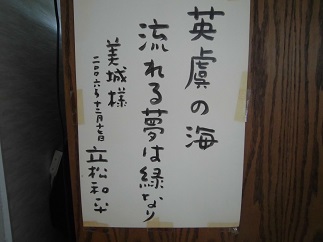 英虞の海
流れる夢は緑なり
美城様
二〇〇六年十二月十七日
立松和平